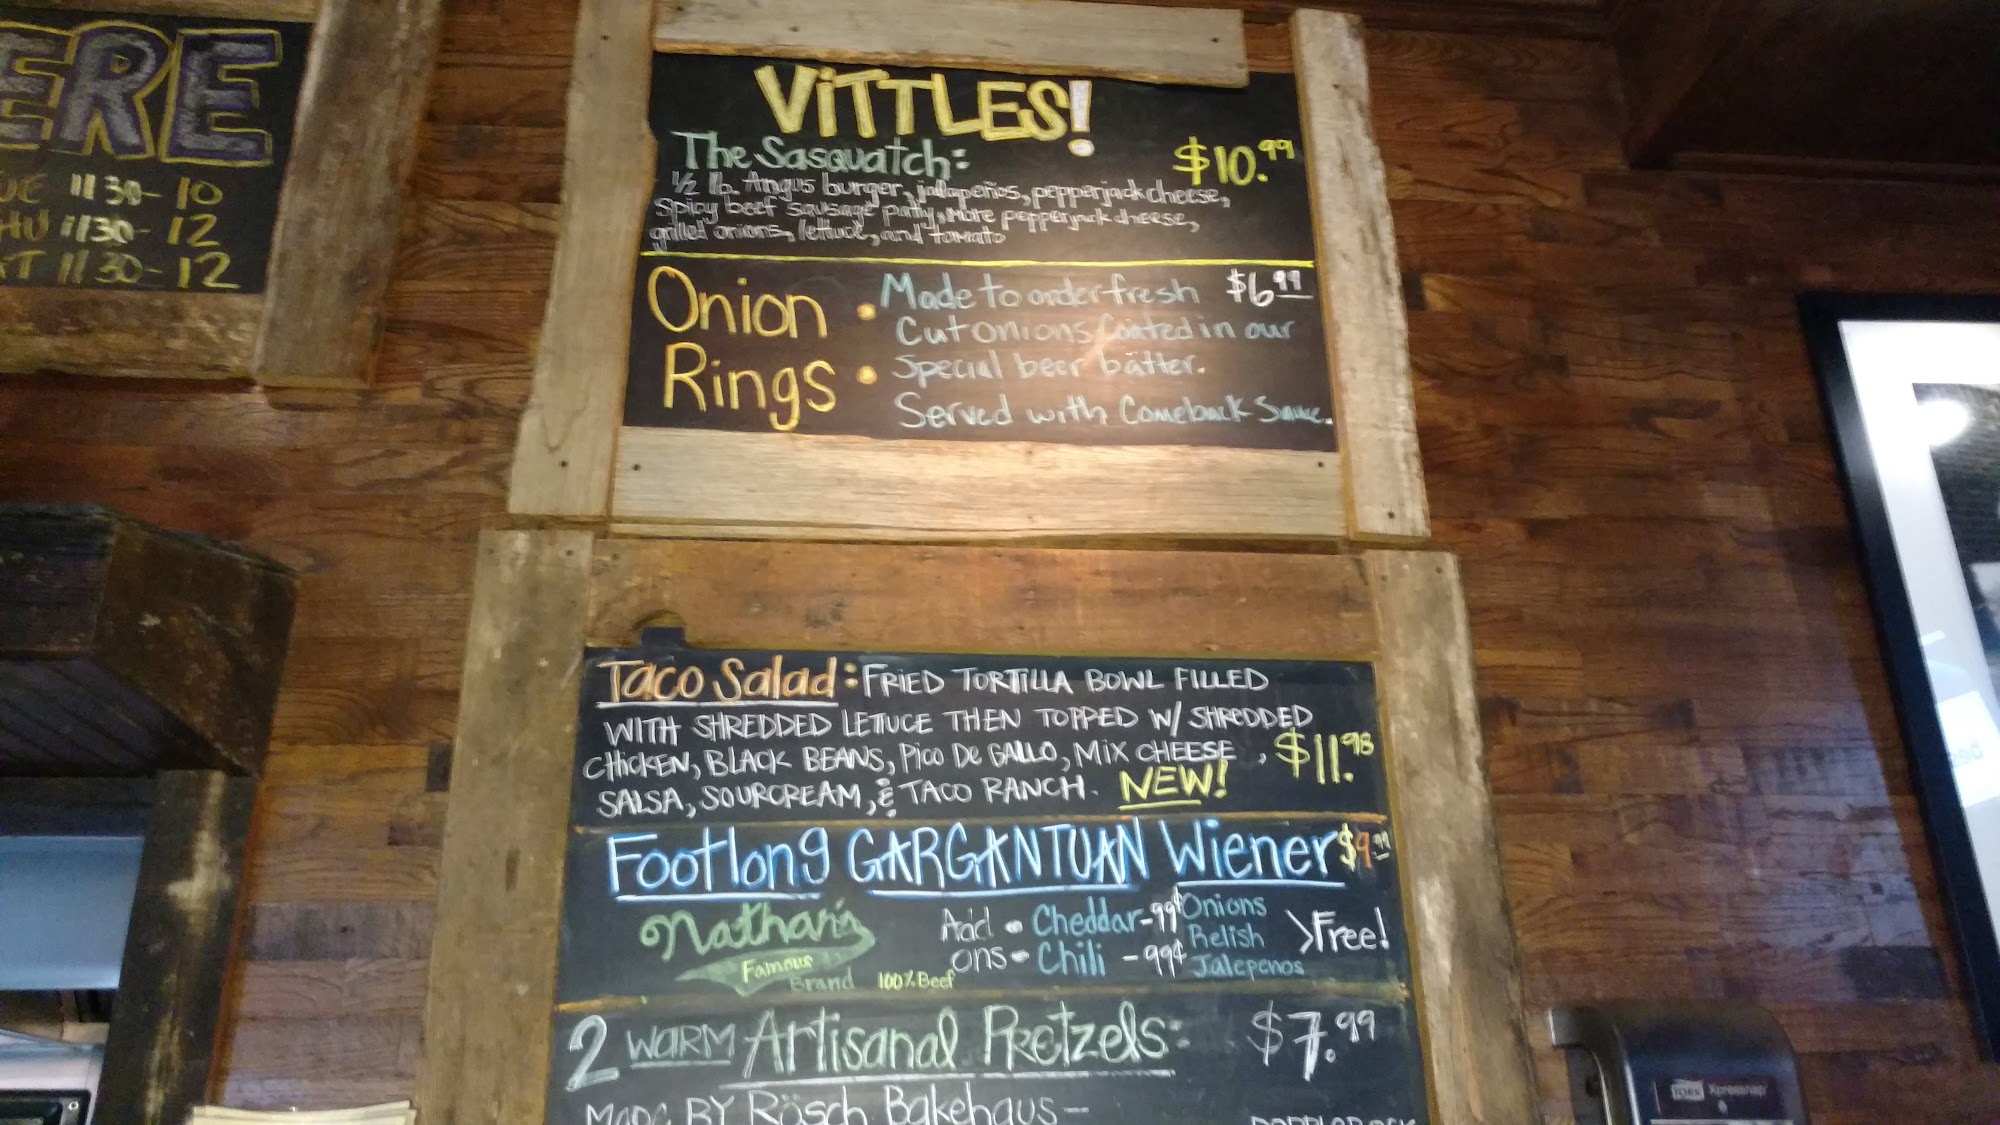 ERE
UE 11 30- 10
HU 11 30- 12
AT 11 30- 12
ViTTLES!
The Sasquatch: $10.99
1/2 lb. Angus burger, jallapeños, pepperjack cheese,
Spicy beef sausage patty, more pepperjack cheese,
grilled onions, lettuce, and tomato
Onion Rings
• Made to order fresh $6.99
Cut onions Coated in our
• Special beer batter.
Served with Comeback Sauce.
Taco Salad: FRIED TORTILLA BOWL FILLED
WITH SHREDDED LETTUCE THEN TOPPED W/ SHREDDED
CHICKEN, BLACK BEANS, PICO DE GALLO, MIX CHEESE, $11.98
SALSA, SOURCREAM, & TACO RANCH. NEW!
Footlong GARGANTUAN Wiener $9.99
Nathan's
Famous
Brand 100% Beef
Add - Cheddar - 99¢
ons - Chili - 99¢
Onions
Relish >Free!
Jalepenos
2 WARM Artisanal Pretzels: $7.99
MADE BY Rösch Bakehaus--
TORK Xpressnap